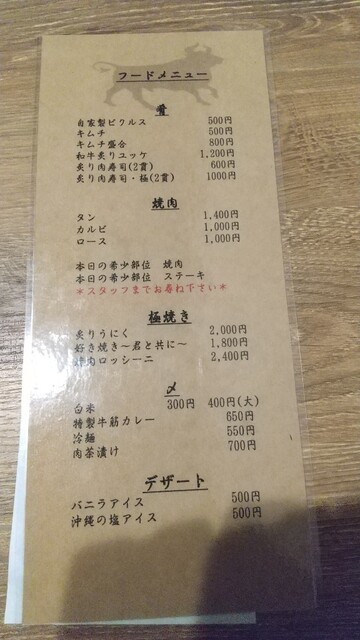 フードメニュー
肴
自家製ピクルス 500円
キムチ 500円
キムチ盛合 800円
和牛炙りユッケ 1,200円
炙り肉寿司(2貫) 600円
炙り肉寿司・極(2貫) 1000円
焼肉
タン 1,400円
カルビ 1,000円
ロース 1,000円
本日の希少部位 焼肉
本日の希少部位 ステーキ
*スタッフまでお尋ね下さい*
極焼き
炙りうにく 2,000円
好き焼き~君と共に~ 1,800円
肉ロッシーニ 2,400円
〆
白米 300円 400円(大)
特製牛筋カレー 650円
冷麺 550円
肉茶漬け 700円
デザート
バニラアイス 500円
沖縄の塩アイス 500円